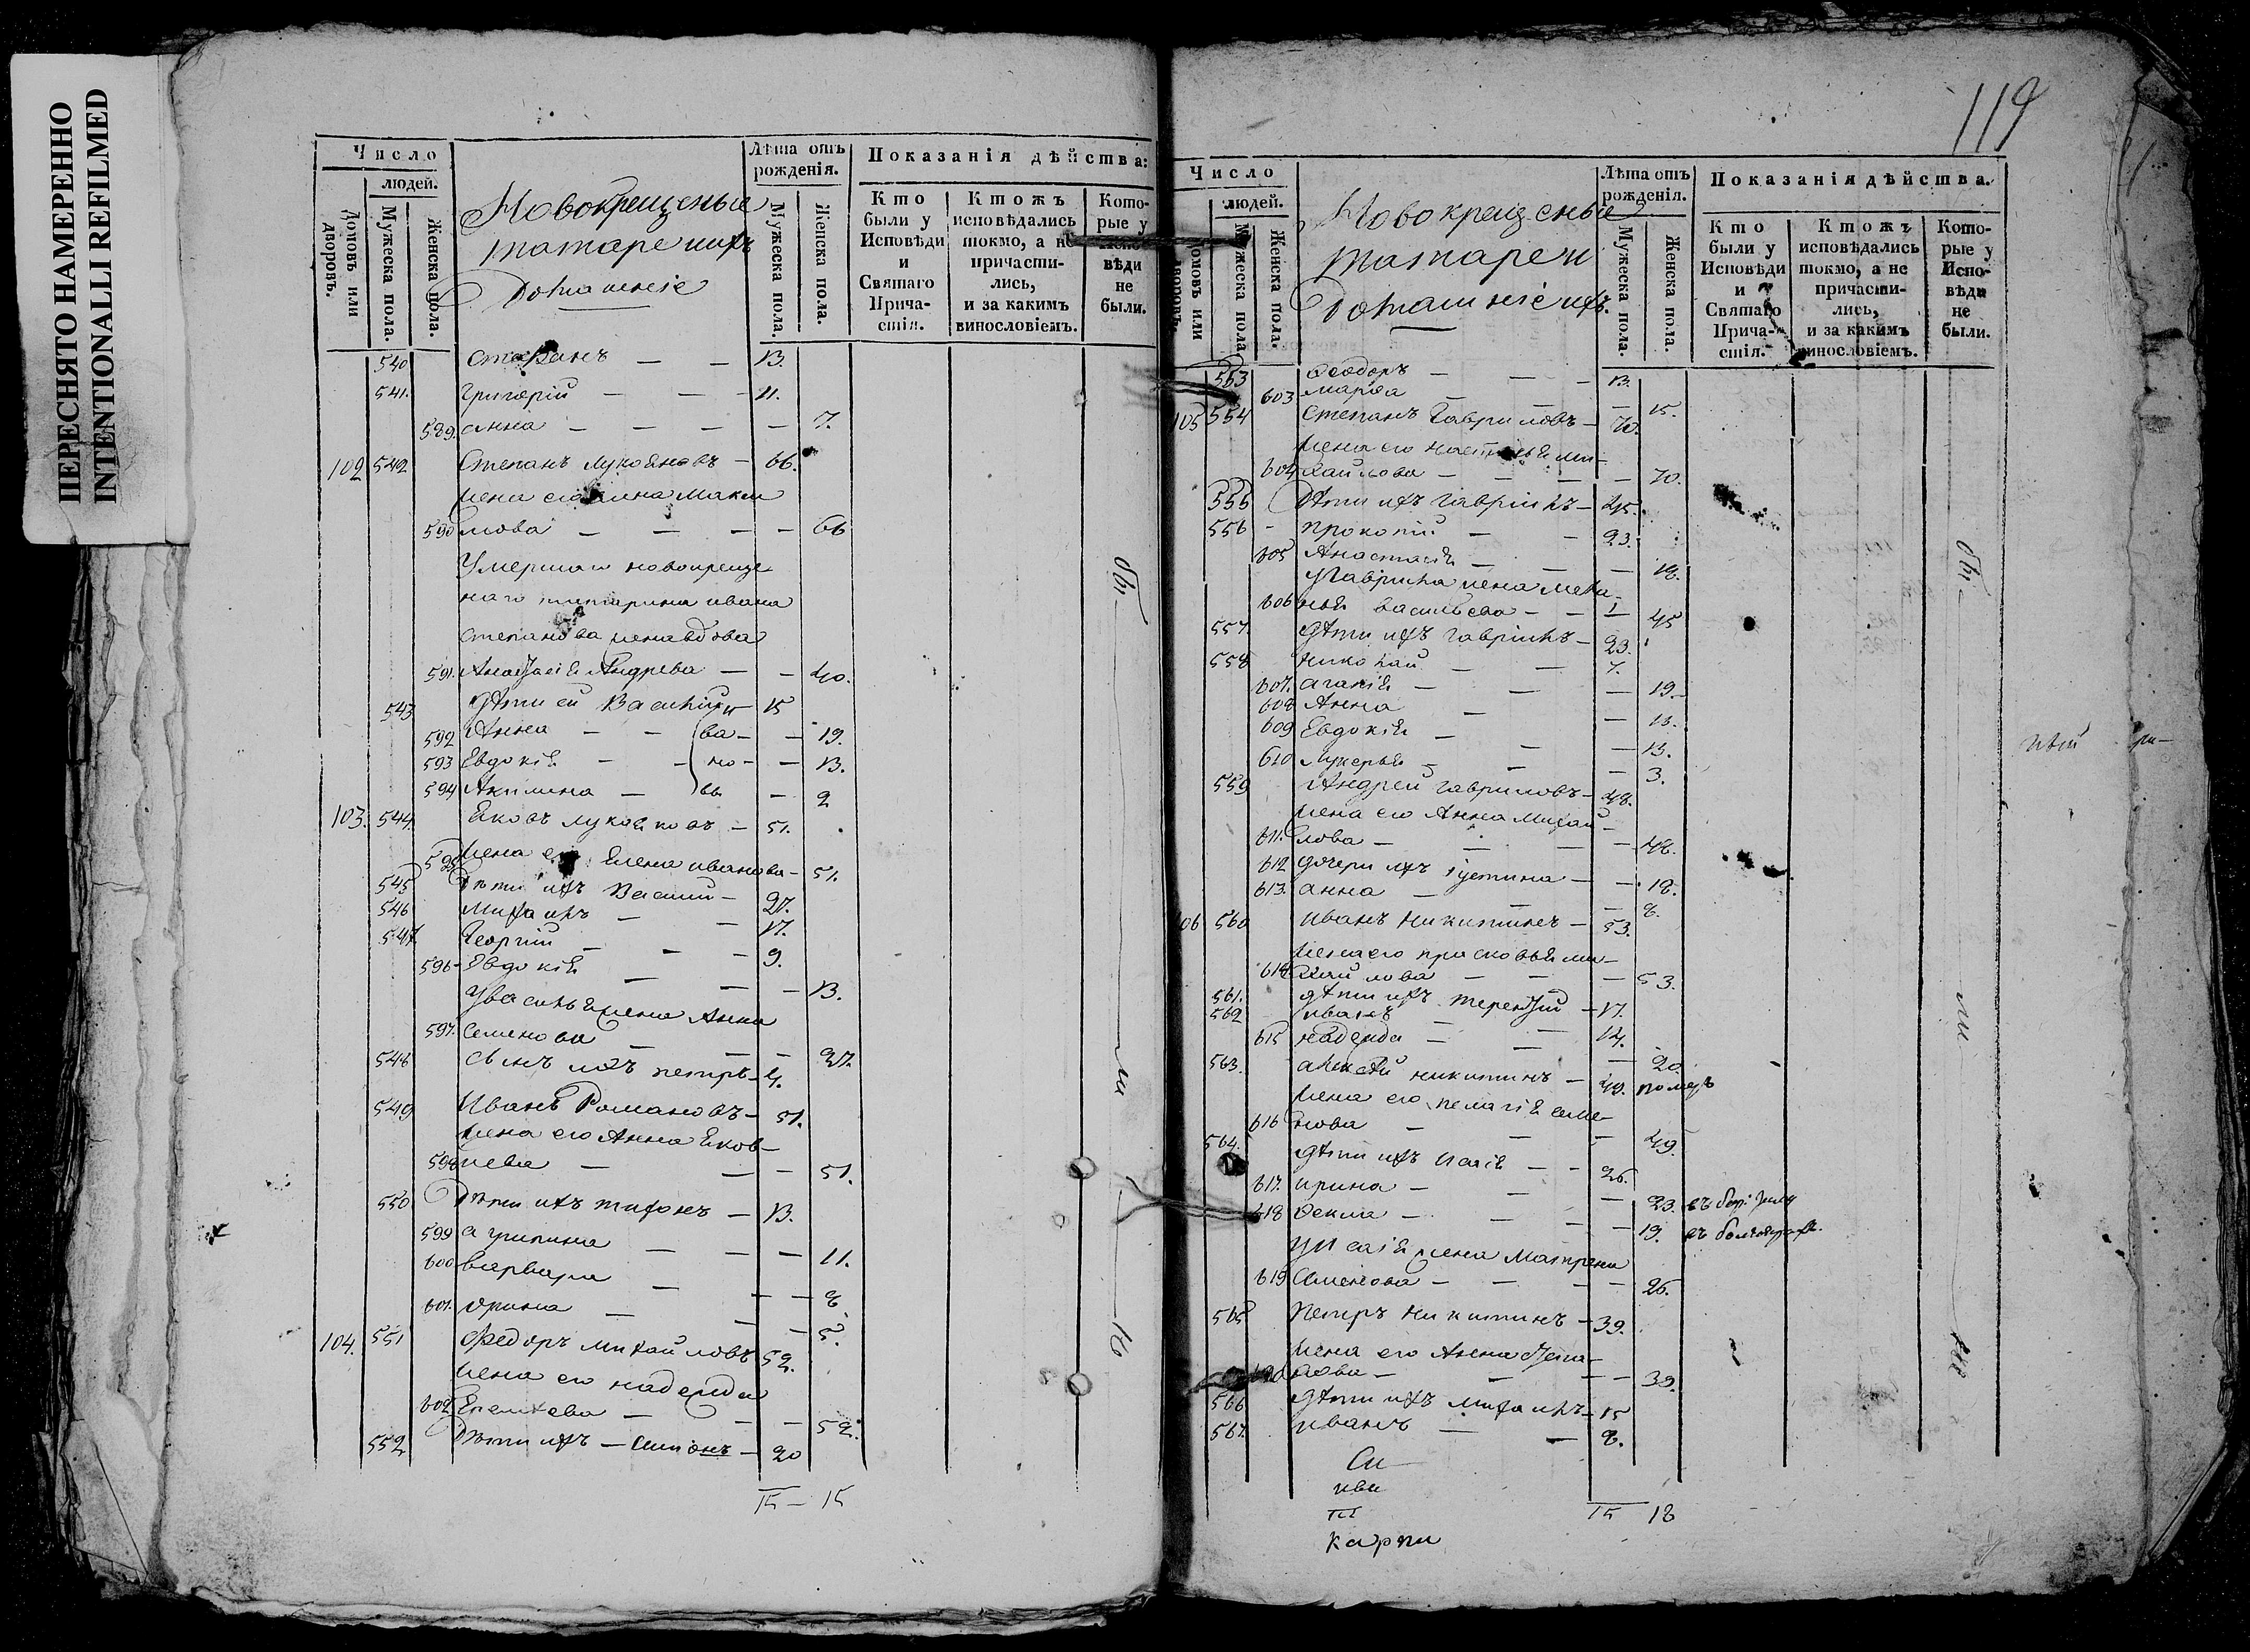 ПЕРЕСНЯТО НАМЕРЕННО
INTENTIONALLI REFILMED
Число
людей.
Домовъ или дворовъ.
Мужеска пола.
Женска пола.
Новокрещеные
татаре ихъ
Домашніе
Лѣта отъ рожденія.
Мужеска пола.
Женска пола.
Показанія дѣйства:
Кто были у Исповѣди и Святаго Причастія.
Ктожъ исповѣдались токмо, а не причастились, и за какимъ винословіемъ.
Которые у вѣди не были.
540 Степанъ — — 13.
541. Григорій — — — 11.
589. Анна — — — — 7.
102 542 Степанъ Лукояновъ — 66.
жена его Анна Макси
590 мова — — — — 66
Умершаго новокреще
наго татарина Ивана
Степанова жена вдова
591. Анастасія Андрева — — 40.
543 дѣти ей Василій 15
592 Анна — — ва — — 19.
593 Евдокія — — но — — 13.
594 Акилина — вы — 2
103. 544. Яковъ Лукояновъ — 51.
595 жена его Елена Иванова — 51.
545 Дѣти ихъ Василій — 27.
546 Михаилъ — — 17.
547. Георгій — — — 9.
596 Евдокія — — — 13.
У Василья жена Анна
597. Семенова — — — 27.
548 Сынъ ихъ Петръ — 4.
549 Иванъ Романовъ — 51.
жена его Анна Яков—
598 лева — — — 51.
550 Дѣти ихъ Тихонъ — 13.
599 Агрипина — — — 11.
600 Варвара — — — 8.
601. Орина — — — 5.
104. 551 Федоръ Михайловъ 52.
жена его Надежда
602 Еремеева — — — 52.
552 Дѣти ихъ — Симіонъ — 20
15 — 15
бы
ли
16
119
Число
людей.
Домовъ или дворовъ.
Мужеска пола
Женска пола.
Новокрещеные
татаре и
Домашніе ихъ.
Лѣта отъ рожденія.
Мужеска пола.
Женска пола.
Показанія дѣйства.
Кто были у Исповѣди и Святаго Причастія.
Ктожъ исповѣдались токмо, а не причастились, и за какимъ винословіемъ.
Которые у Исповѣди не были.
553 Ѳеодоръ — — — 13.
603 Марѳа — — — 15.
105 554 Степанъ Гавриловъ — 70.
жена его Настасья Ми—
604 хайлова — — — — 70.
555 Дѣти ихъ Гавріилъ — 45.
556 — Прокопій — — 23.
605 Анастасія — — — 18.
У Гавріила жена Мела—
606 нья Васильева — — 45
557. Дѣти ихъ Гавріилъ — 23.
558 Николай — — 7.
607. Агапія — — — 19.
608 Анна — — 13.
609 Евдокія — — — 13.
610 Лукерья — — — 3.
559 Андрей Гавриловъ — 48.
жена его Анна Михай—
611. лова — — — — 48.
612 дочери ихъ Іустина — — 18.
613. Анна — — — 8.
106 560 Иванъ Никитинъ — 53.
жена его Прасковья Ми—
614 хайлова — — — — 53.
561. дѣти ихъ Терентій — 17.
562 Иванъ — — 14.
615 Надежда — — — 20.
563. Алексѣй Никитинъ — 49. померъ
жена его Пелагія Семе—
616 нова — — — 49.
564. дѣти ихъ Исаія — — 26.
617. Ирина — — — 23.
618 Ѳекла — — — — 19.
У Исаія жена Матрена
619 Семенова — — — — 26.
565 Петръ Никитинъ — 39.
жена его Анна Степа—
620 нова — — — — 39.
566 Дѣти ихъ Михаилъ — 15
567. Иванъ — — 8.
Си
ива
Карпи
15 18
бы
ли